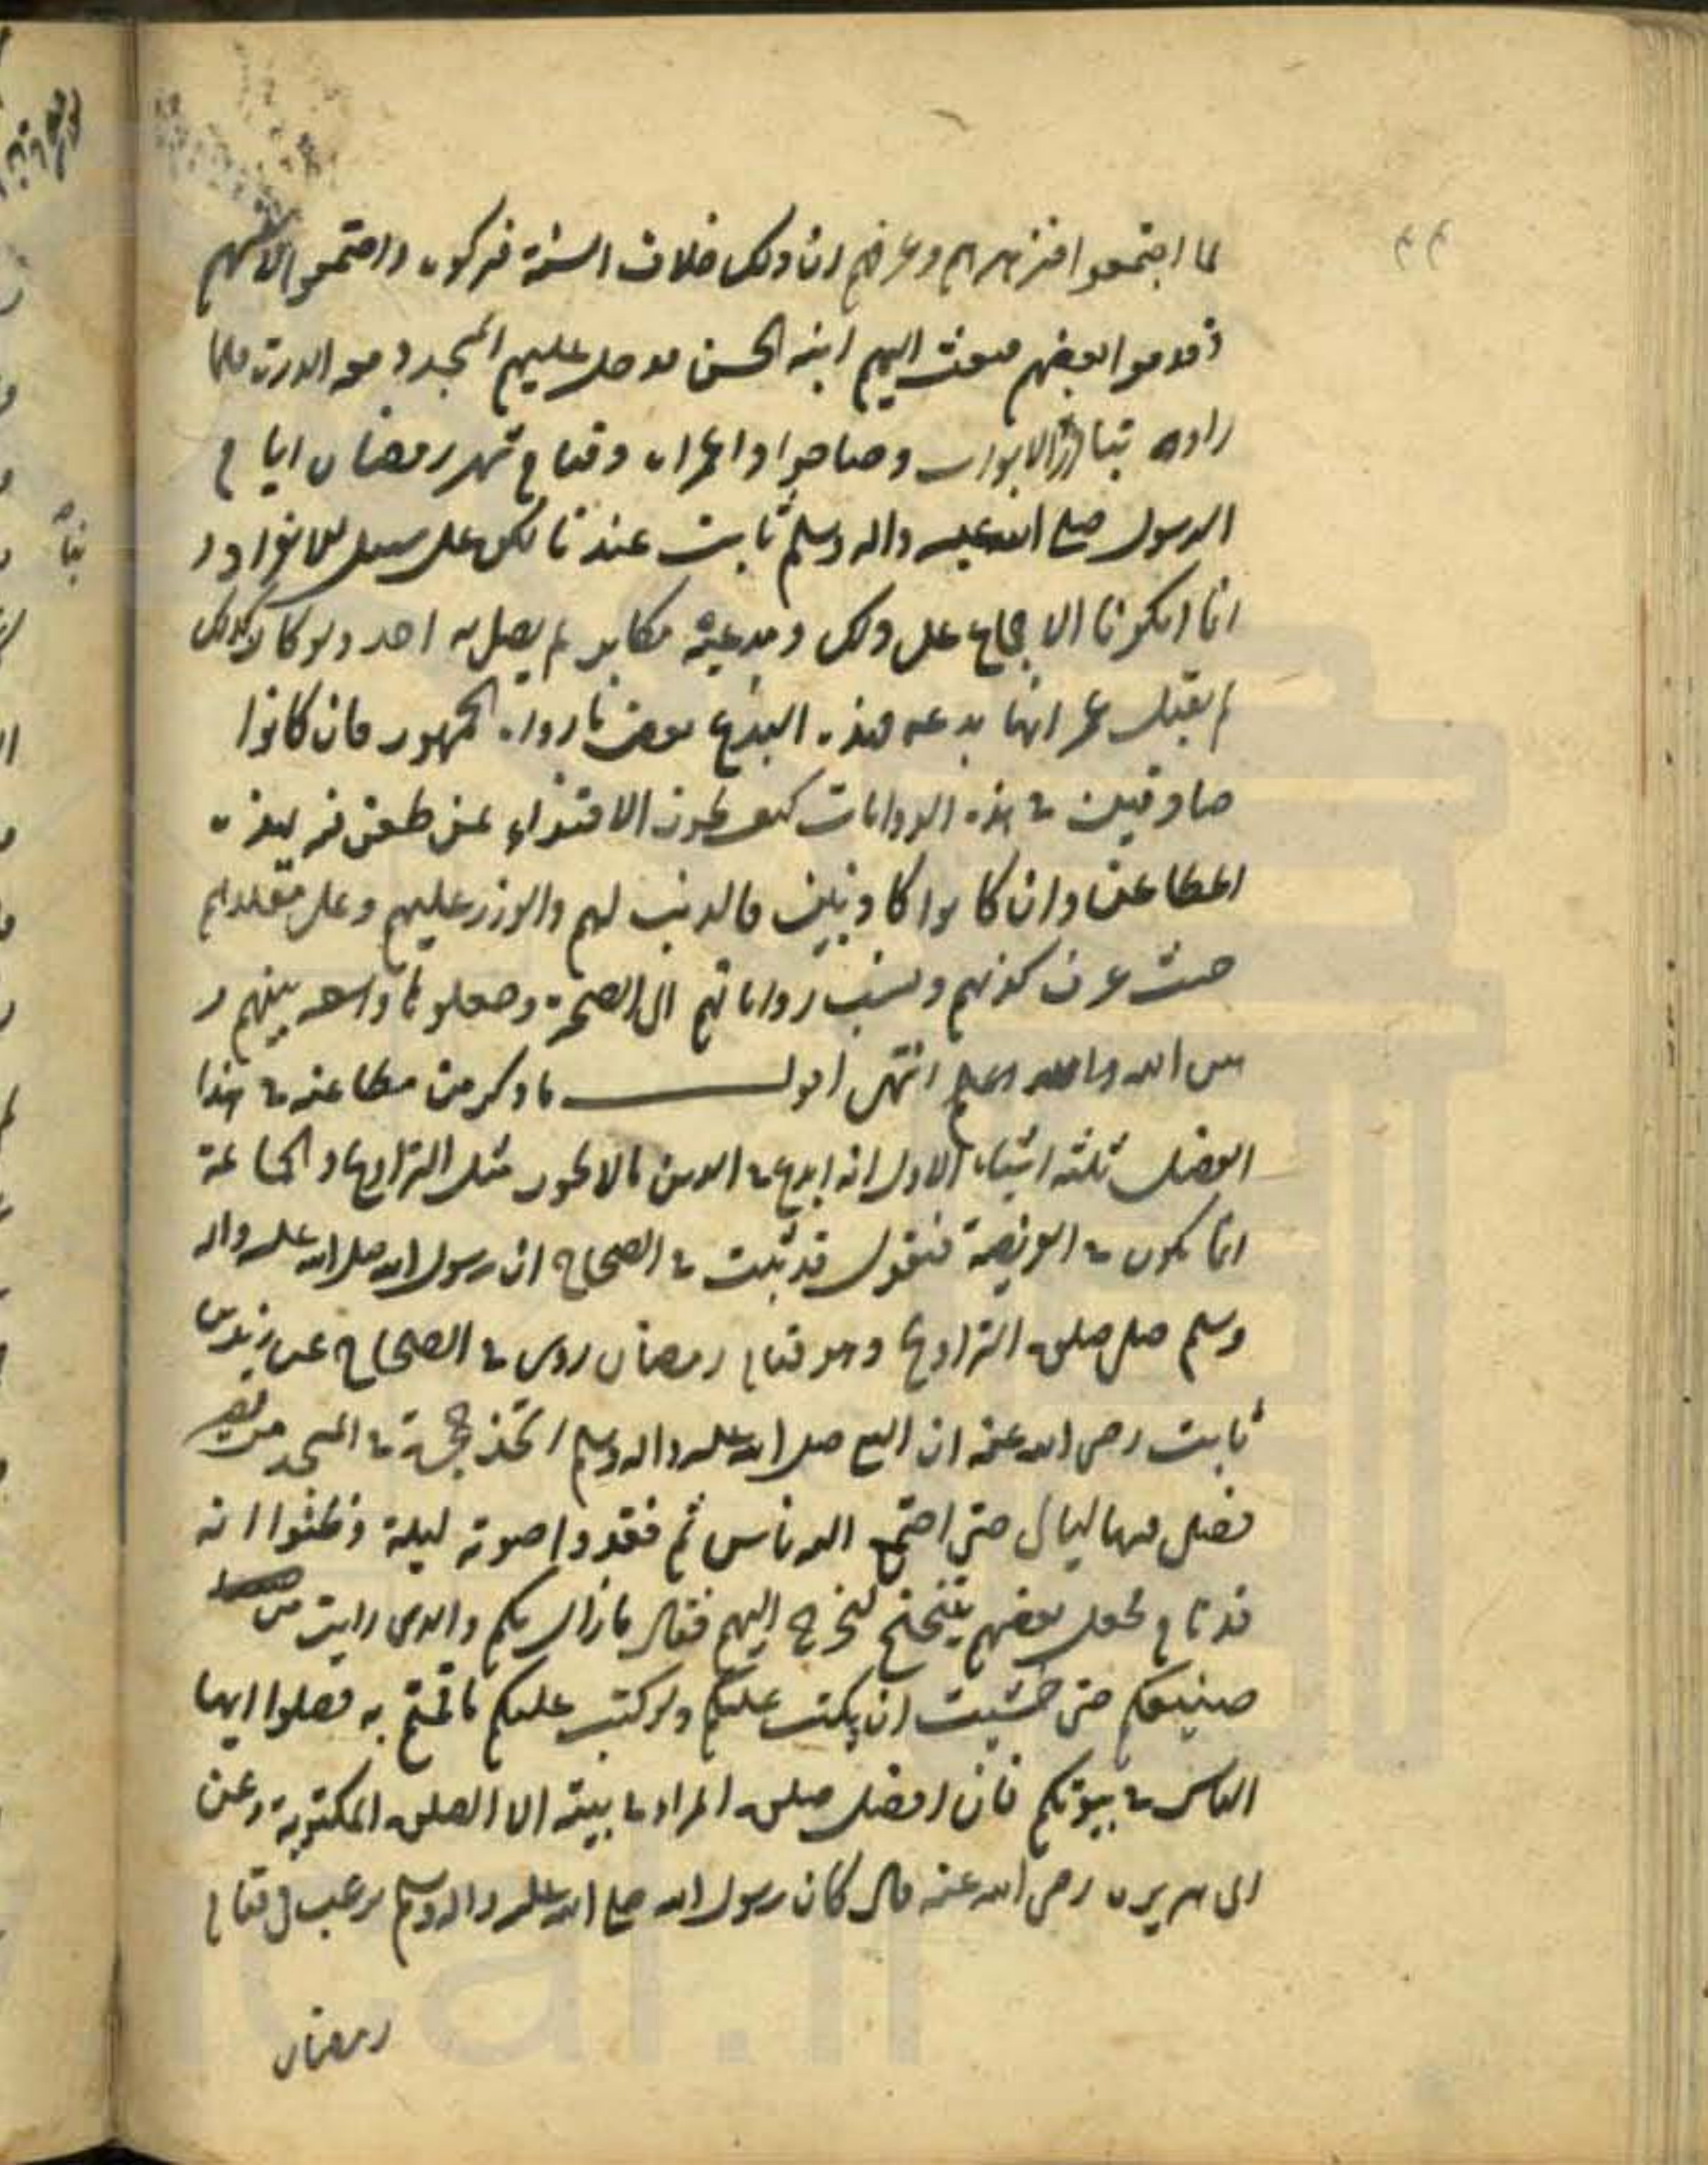 لما اجتمعوا فزبرهم وعرفهم ان ذلك خلاف السنة فتركوه واجتمعوا لانفسهم
وقدموا بعضهم فبعث اليهم ابنه الحسن فدخل عليهم المسجد ومعه الدرة فلما
راوه تبادروا الابواب وصاحوا واعمراه وقيام شهر رمضان ايام
الرسول صلى الله عليه واله وسلم ثابت عندنا لكن على سبيل الانفراد و
انما انكرنا الاجماع على ذلك ومدعيه مكابر لم يصل به احد ولو كان كذلك
لم يقبل عمر انها بدعة فهذه البدع بعض ما رواه الجمهور فان كانوا
صادقين في هذه الروايات كيف يجوز الاقتداء بمن طعن فيه بهذه
المطاعن وان كانوا كاذبين فالذنب لهم والوزر عليهم وعلى مقلديهم
حيث عرف كذبهم ونسب رواياتهم الى الصحة وجعلوها واسطة بينهم و
بين الله والله اعلم انتهى اقول ما ذكر من مطاعنه في هذا
الفصل ثلثة اشياء الاول انه ابدع في الدين مالا يجوز مثل التراويح والجماعة
انما يكون في الفريضة فنقول قد ثبت في الصحاح ان رسول الله صلى الله عليه واله
وسلم صلى صلوة التراويح وهو قيام رمضان روى في الصحاح عن زيد بن
ثابت رضى الله عنه ان النبي صلى الله عليه واله وسلم اتخذ حجرة في المسجد من حصير
فصلى فيها ليالي حتى اجتمع اليه ناس ثم فقدوا صوته ليلة وظنوا انه
قد نام فجعل بعضهم يتنحنح ليخرج اليهم فقال ما زال بكم والذى رايت من
صنيعكم حتى خشيت ان يكتب عليكم ولو كتب عليكم ما قمتم به فصلوا ايها
الناس في بيوتكم فان افضل صلوة المرء في بيته الا الصلوة المكتوبة وعن
ابى هريرة رضى الله عنه قال كان رسول الله صلى الله عليه واله وسلم يرغب في قيام
رمضان